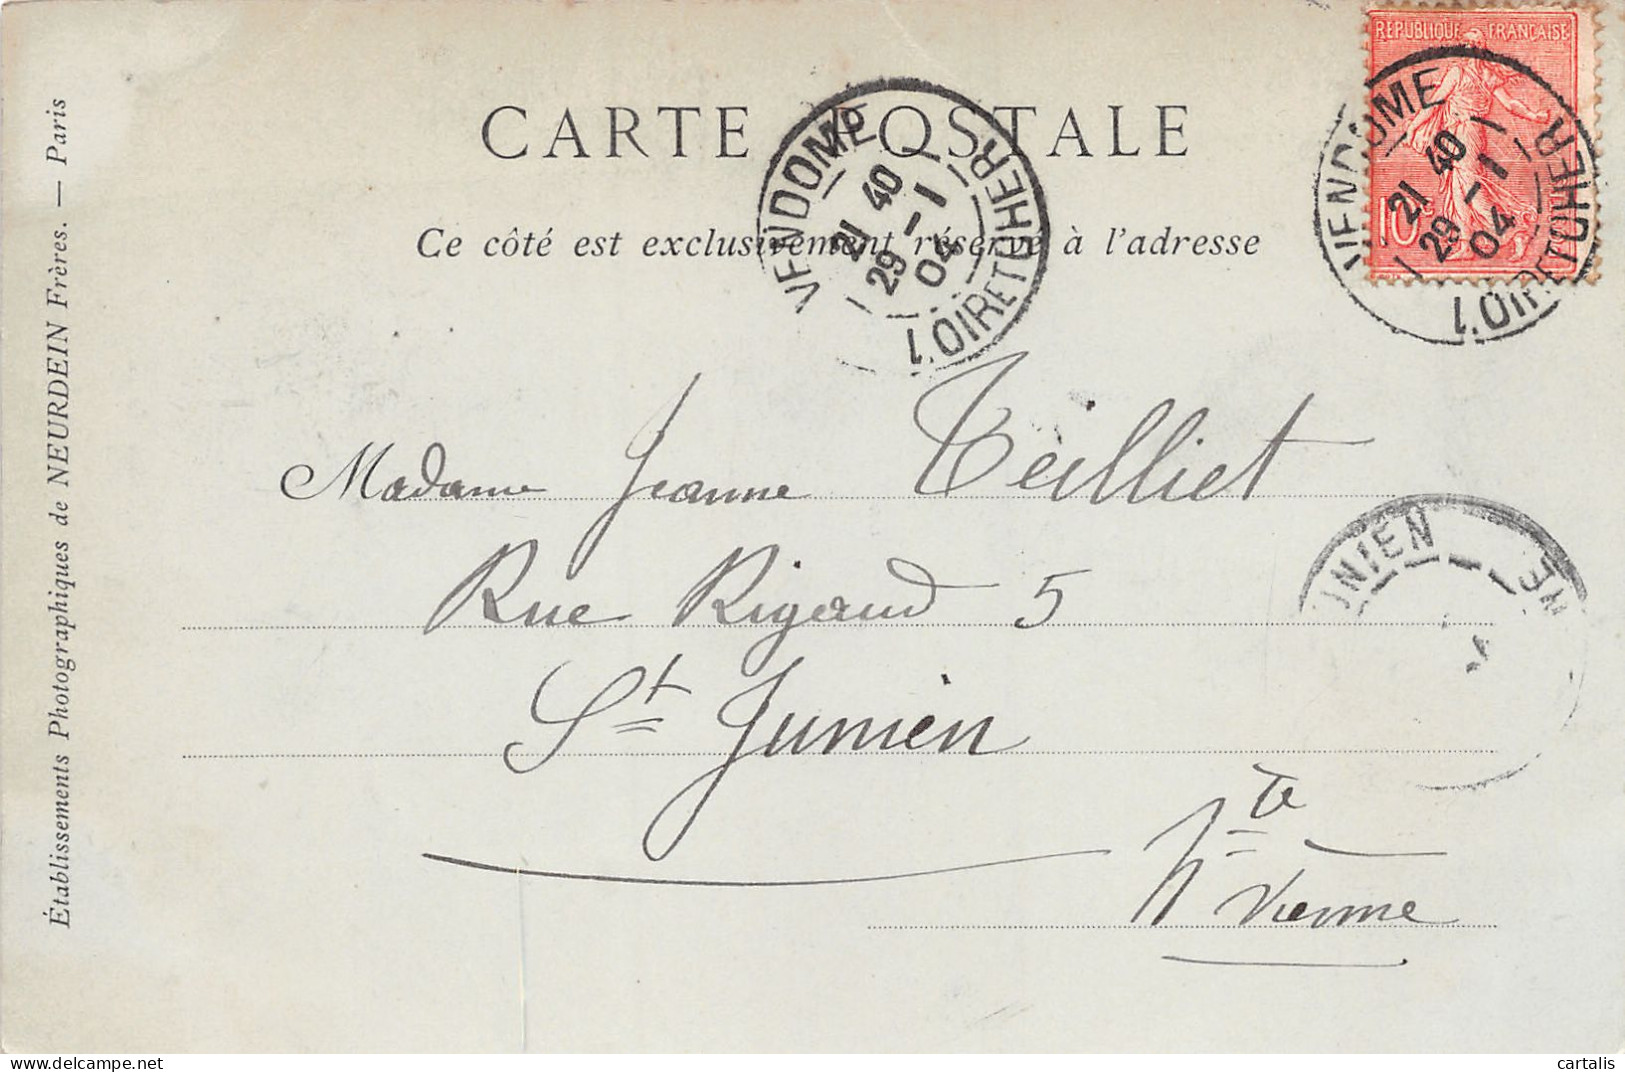 RÉPUBLIQUE FRANÇAISE
10c
CARTE POSTALE
Ce côté est exclusivement réservé à l'adresse
VENDOME
21 40
29 - 1
04
LOIR ET CHER
VENDOME
21 40
29 - 1
04
LOIR ET CHER
Madame Jeanne Teilliet
Rue Rigaud 5
St Junien
Hte Vienne
UNIEN
NE
Établissements Photographiques de NEURDEIN Frères. — Paris
cartalis